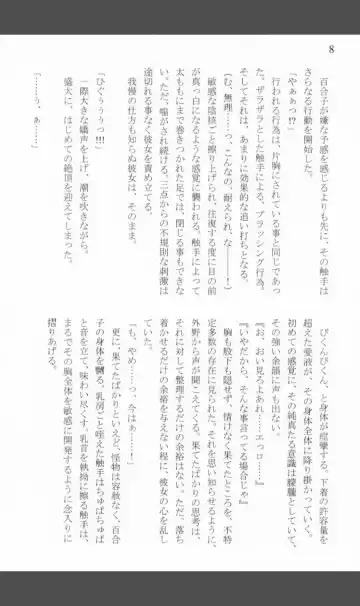 8
百合子が嫌な予感を感じるよりも先に、その触手は
さらなる行動を開始した。
「やぁぁっ!?」
行われる行為は、片胸にされている事と同じであっ
た。ザラザラとした触手による、ブラッシング行為。
そしてそれは、あまりに効果的な追い打ちとなる。
(む、無理……っ、こんなの、耐えられ、な――！)
敏感な陰核ごと擦り上げられ、往復する度に目の前
が真っ白になるような感覚に襲われる。触手によって
太ももにまで巻きつかれた足では、閉じる事もできな
い。ただ、嬲がされた三点からの不規則な刺激は
途切れる事なく彼女を責め立てる。
我慢の仕方も知らぬ彼女は、そのまま。
「ひぐぅぅぅっ!!!」
一際大きな嬌声を上げ、潮を吹きながら。
盛大に、はじめての絶頂を迎えてしまった。
「……ぅ、ぁ……」
びくんびくん、と身体が痙攣する。下着の許容量を
超えた愛液が、その身体全体に降り掛かっていく。
初めての感覚に、その純真たる意識は朦朧としていて、
その強い余韻に声も出ない。
『お、おい見ろよあれ……エっロ……』
『いやだから、そんな事言ってる場合じゃ』
胸も股下も隠せず、情けなく果てたところを、不特
定多数の存在に見られた。それを思い知らせるように、
外野から声が聞こえてくる。果てたばかりの思考は、
それに対して整理するだけの余裕はない。ただ、落ち
着かせるだけの余裕を与えない程に、彼女の心を乱し
ていた。
「も、やめ……っ、今はぁ……！」
更に、果てたばかりといえど、怪物は容赦なく、百合
子の身体を嬲る。乳房ごと咥えた触手はちゅぱちゅぱ
と音を立て、味わい尽くす。乳首を執拗に擦る触手は、
まるでその胸全体を敏感に開発するように念入りに
摺りあげる。